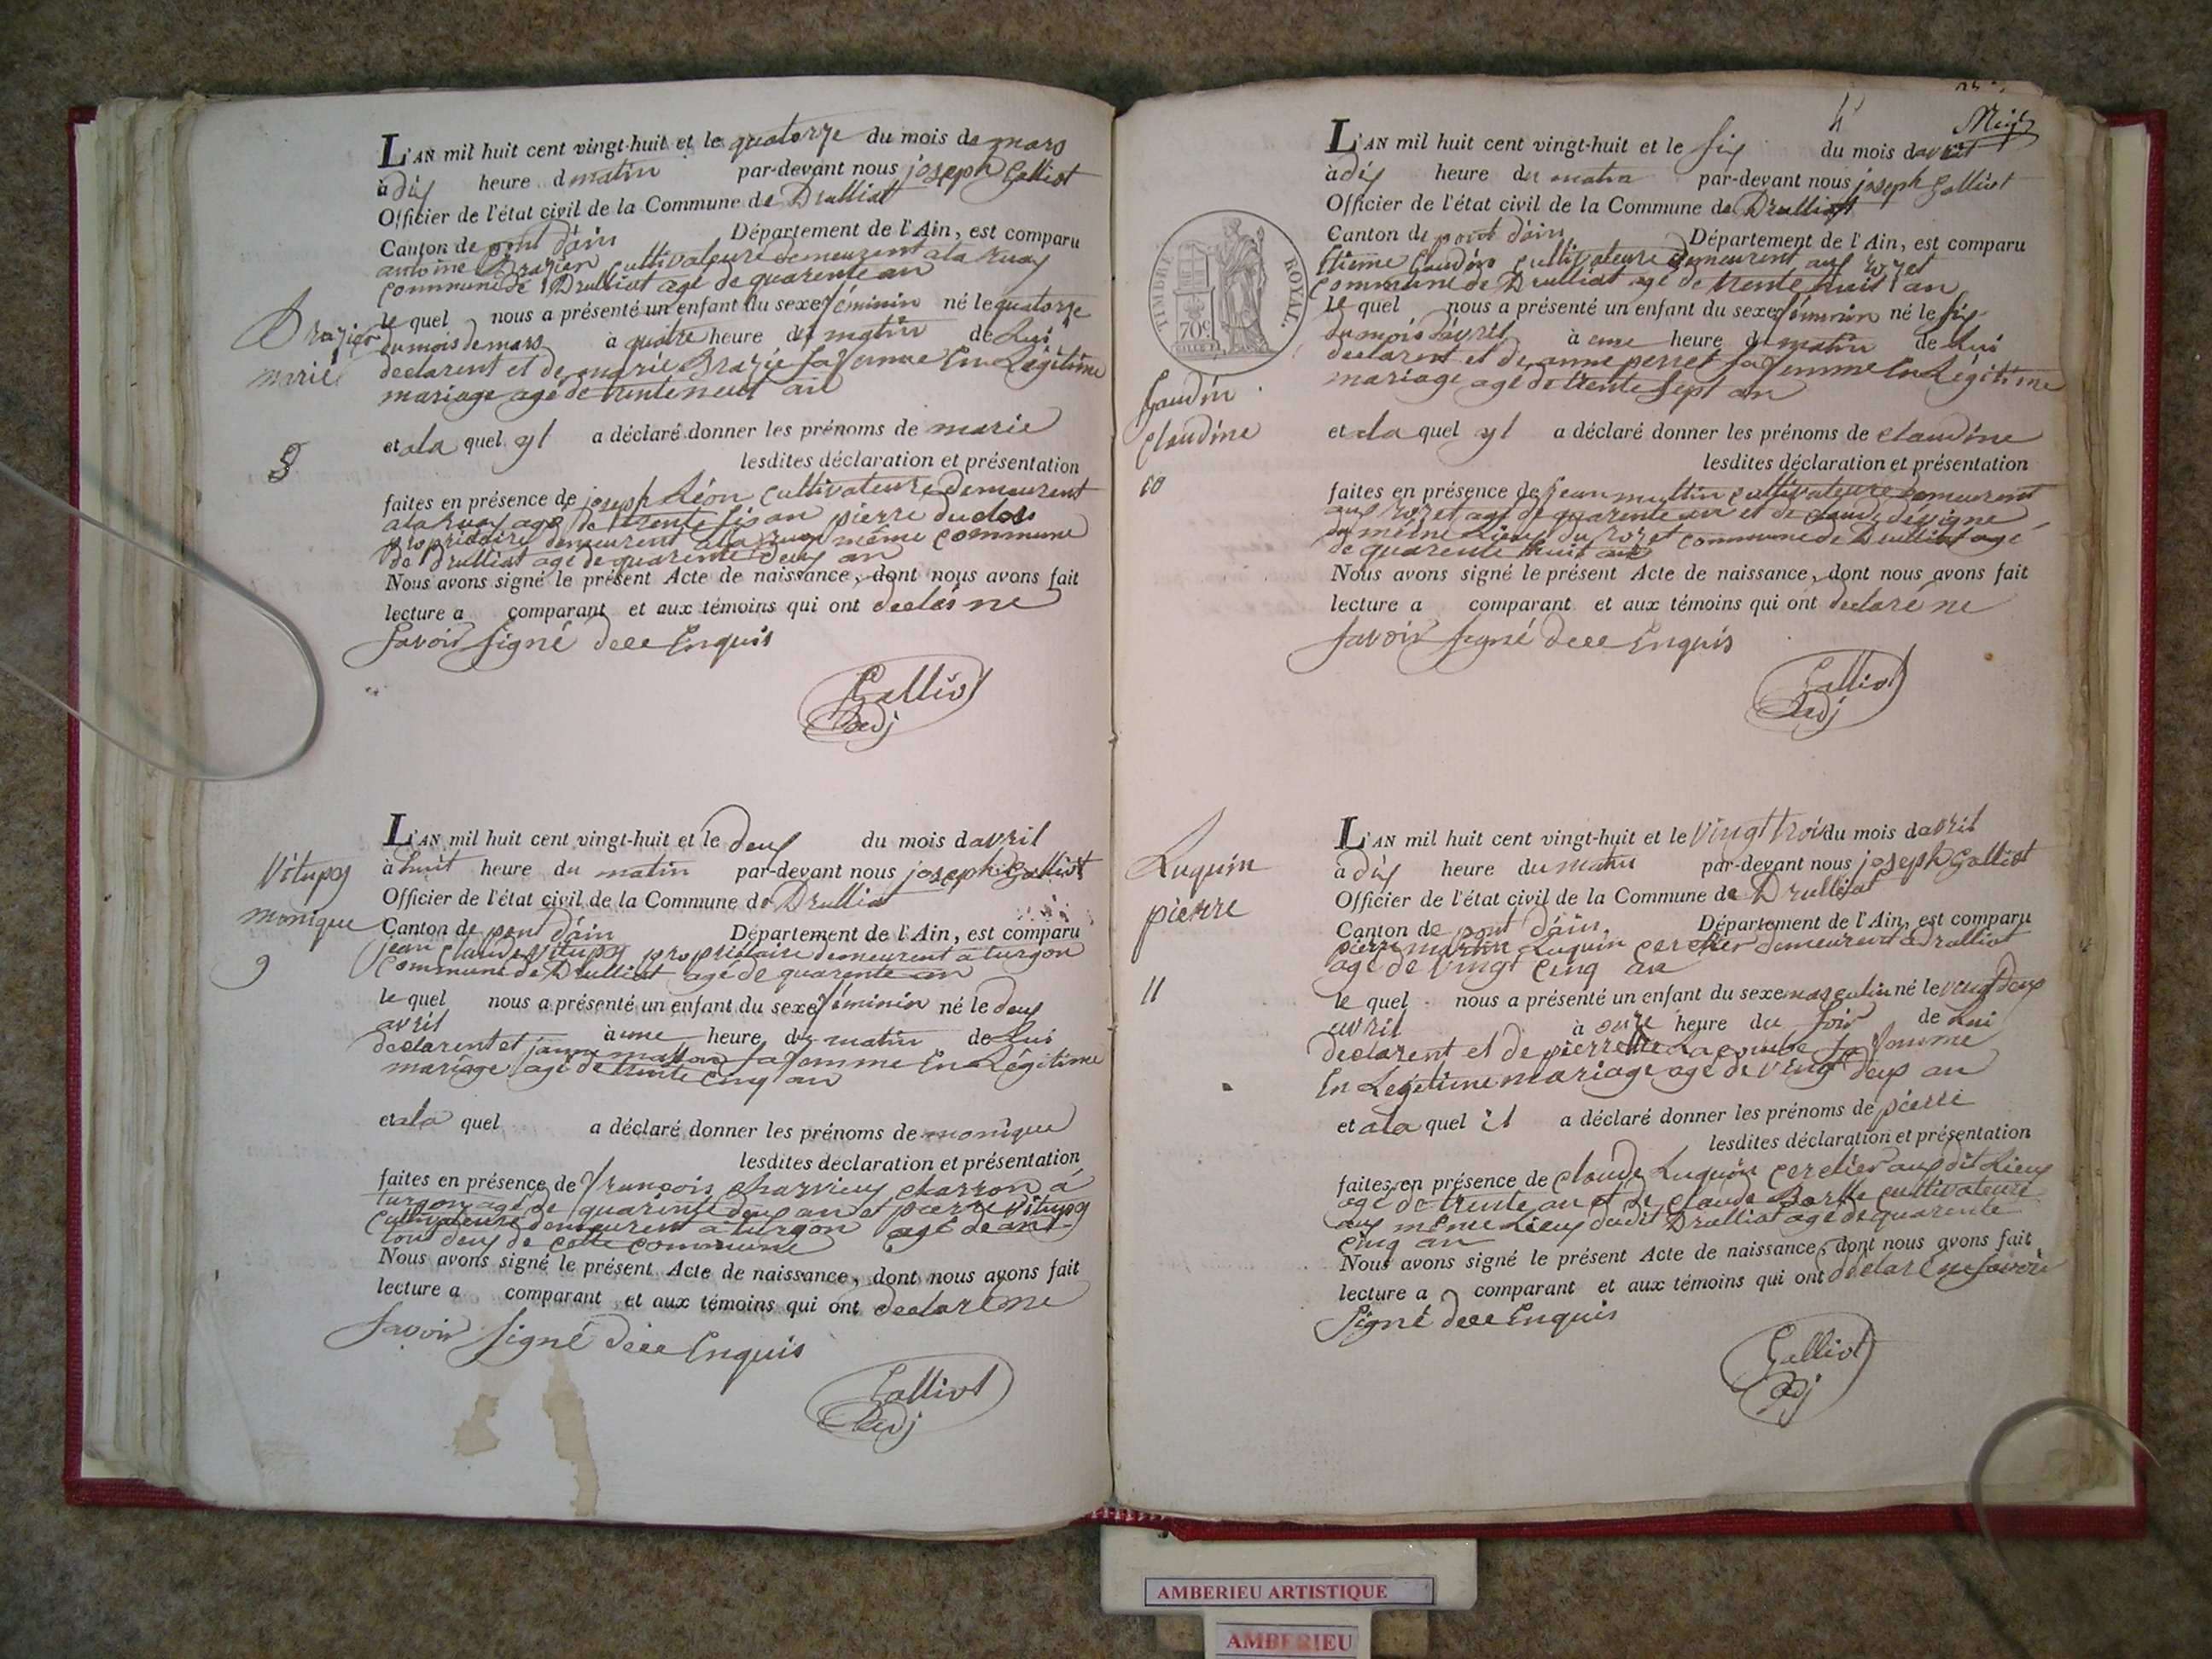 L'AN mil huit cent vingt-huit et le quatorze du mois de mars
à dix heure d matin par-devant nous joseph Galliot
Officier de l'état civil de la Commune de Drulliat
Canton de pont d'ain Département de l'Ain, est comparu
antoine Brazier cultivateure demeurent a la ruaz
commune de Drulliat agé de quarente an
le quel nous a présenté un enfant du sexe féminin né le quatorze
du mois de mars à quatre heure du matin de Lui
declarent et de marie Brazié sa femme En Légitime
mariage agé de trente neuf an
et a la quel yl a déclaré donner les prénoms de marie
lesdites déclaration et présentation
faites en présence de joseph Léon cultivateure demeurent
a la ruaz agé de trente six an pierre duclos
propriétaire demeurent a la ruaz même commune
de Drulliat agé de quarente deux an
Nous avons signé le présent Acte de naissance, dont nous avons fait
lecture a comparant et aux témoins qui ont declés ne
savoir signé de ce Enquis
Galliot
adj
Brazier
marie
8
L'AN mil huit cent vingt-huit et le deux du mois d avril
à huit heure du matin par-devant nous joseph Galliot
Officier de l'état civil de la Commune de Drulliat
Canton de pont d'ain Département de l'Ain, est comparu
jean claude Vitupoz propriétaire demeurent a turgon
commune de Drulliat agé de quarente an
le quel nous a présenté un enfant du sexe féminin né le deux
avril à une heure du matin de Lui
declarent et sa femme En Légitime
mariage agé de trente cinq an
et a la quel a déclaré donner les prénoms de monique
lesdites déclaration et présentation
faites en présence de françois charvieux charron a
turgon agé de quarente deux an et pierre Vitupoz
cultivateure demeurent a turgon agé de an
tou deux de cette commune
Nous avons signé le présent Acte de naissance, dont nous avons fait
lecture a comparant et aux témoins qui ont declaré ne
savoir signé de ce Enquis
Galliot
adj
Vitupoz
monique
9
4
L'AN mil huit cent vingt-huit et le six du mois d avril
à dix heure du matin par-devant nous joseph Galliot
Officier de l'état civil de la Commune de Drulliat
Canton de pont d'ain Département de l'Ain, est comparu
Etienne Gaudin cultivateure demeurent aux rozet
commune de Drulliat agé de trente huit an
le quel nous a présenté un enfant du sexe féminin né le six
du mois d'avril à une heure d matin de Lui
declarent et de anne perret sa femme En Légitime
mariage agé de trente sept an
et a la quel yl a déclaré donner les prénoms de claudine
lesdites déclaration et présentation
faites en présence de jean cultivateure demeurent
aux rozet agé de quarente an et de claude dévigne
du même Lieux du rozet commune de Drulliat agé
de quarente huit an
Nous avons signé le présent Acte de naissance, dont nous avons fait
lecture a comparant et aux témoins qui ont declaré ne
savoir signé de ce Enquis
Galliot
adj
TIMBRE ROYAL.
70c
Gaudin
claudine
10
L'AN mil huit cent vingt-huit et le vingt trois du mois d avril
à dix heure du matin par-devant nous joseph Galliot
Officier de l'état civil de la Commune de Drulliat
Canton de pont d'ain, Département de l'Ain, est comparu
pierre martin Luquin demeurent a Drulliat
agé de vingt cinq an
le quel nous a présenté un enfant du sexe masculin né le vingt deux
avril à onze heure du soir de Lui
declarent et de pierrette Lacombe sa femme
En Legetime mariage agé de vingt deux an
et a la quel il a déclaré donner les prénoms de pierre
lesdites déclaration et présentation
faites en présence de claude Luquin cerclier aux dit Lieux
agé de trente an et de claude cultivateure
aux même Lieux dudit Drulliat agé de quarente
cinq an
Nous avons signé le présent Acte de naissance, dont nous avons fait
lecture a comparant et aux témoins qui ont declaré ne savoir
signé de ce Enquis
Galliot
adj
Luquin
pierre
11
AMBERIEU ARTISTIQUE
AMBERIEU